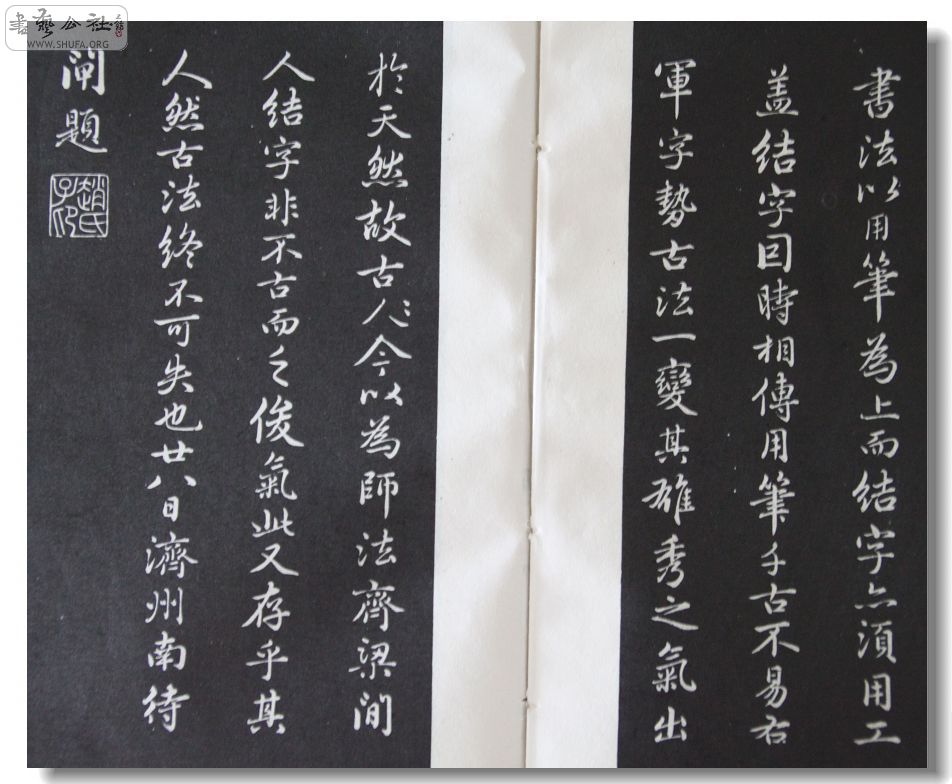 書藝公社
WWW.SHUFA.ORG
書法以用筆為上而結字亦須用工
盖結字因時相傳用筆千古不易右
軍字勢古法一變其雄秀之氣出
於天然故古人〻今以為師法齊梁間
人結字非不古而乏俊氣此又存乎其
人然古法終不可失也廿八日濟州南待
閘題
趙氏
子印